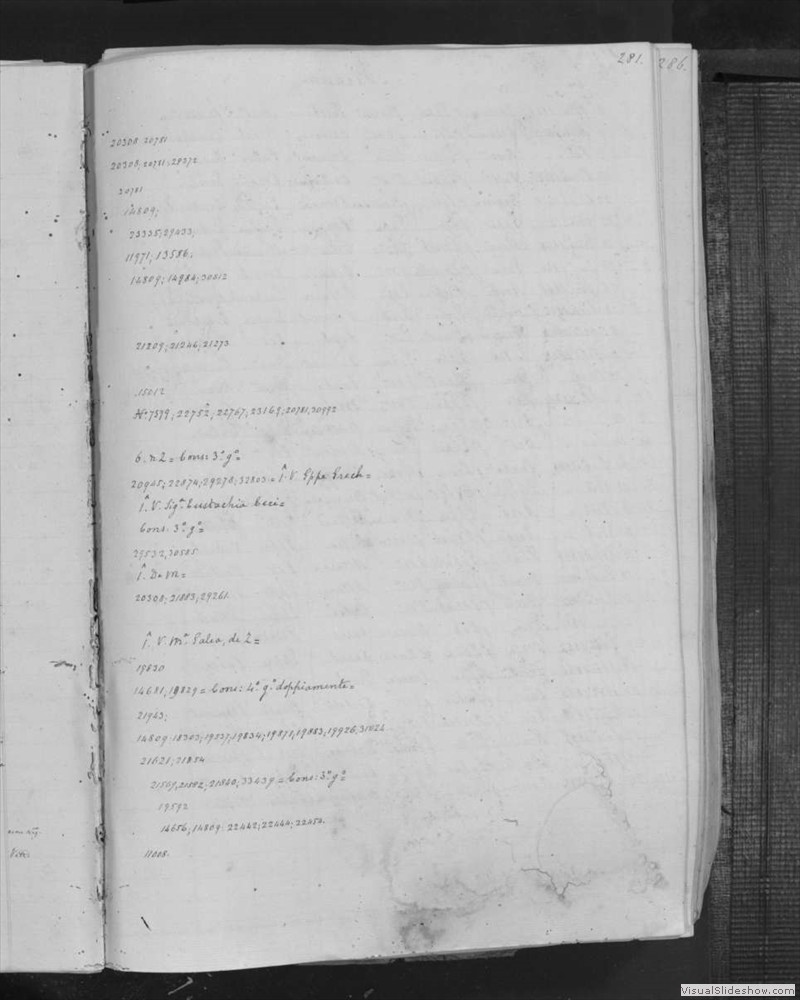 281. 286.
20308 20781
20308; 20781; 28372
20781
14809;
23335; 29433;
11971; 13586;
14809; 14984; 30612
21209; 21246; 21273
15012
N° 7379; 22752; 22767; 23169; 20781, 30992
6. n 2 = Cons: 3° g°=
20945; 22874; 29270; 32803 = V. Eppa
V. Sig.ª Eustachia Ceci=
Cons: 3° g°=
29532, 30585
De M=
20308; 21883, 29261.
V. Mª Palea, de 2=
19830
14681, 19829 = Cons: 4° g° doppiamente=
21943;
14809 18303; 19837; 19834; 19871; 19883; 19926, 31024
21621; 21854
21569, 21860; 33639 = Cons: 3° g°=
19592
14656; 14809 22442; 22444; 22454.
11008.
VisualSlideshow.com